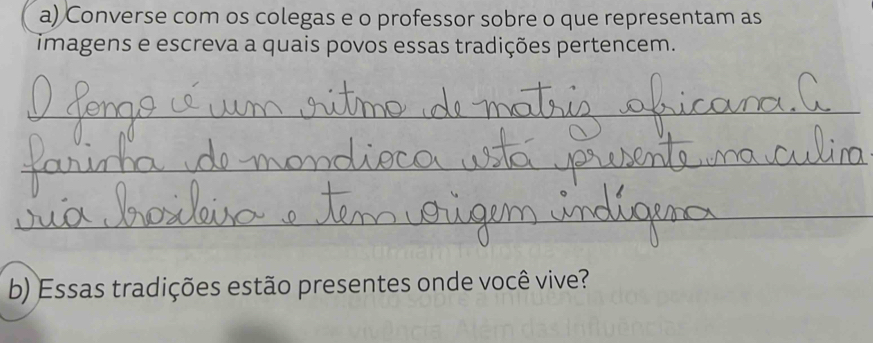 a) Converse com os colegas e o professor sobre o que representam as
imagens e escreva a quais povos essas tradições pertencem.
O Jongo é um ritmo de matriz africana. A
farinha de mandioca está presente na culina
ria brasileira e tem origem indígena
b) Essas tradições estão presentes onde você vive?